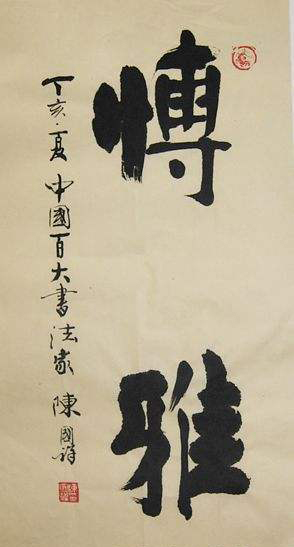 愽雅
丁亥·夏 中國百大書法家 陳國祥